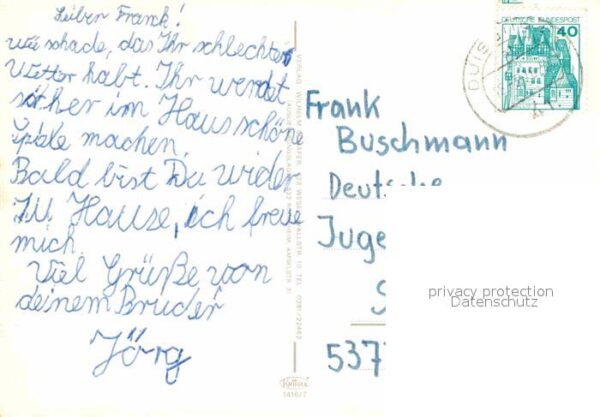 Lieber Franck!
wie schade, das Ihr schlechtes
Wetter habt. Ihr werdet
sicher im Haus schöne
späle machen.
Bald bist Du wider
zu Hause, ich freue
mich.
Viel Grüße von
deinem Bruder
Jörg
Krüger
1416/7
DEUTSCHE BUNDESPOST
40
Frank
Buschmann
Deutsche
Juge
S
537
privacy protection
Datenschutz